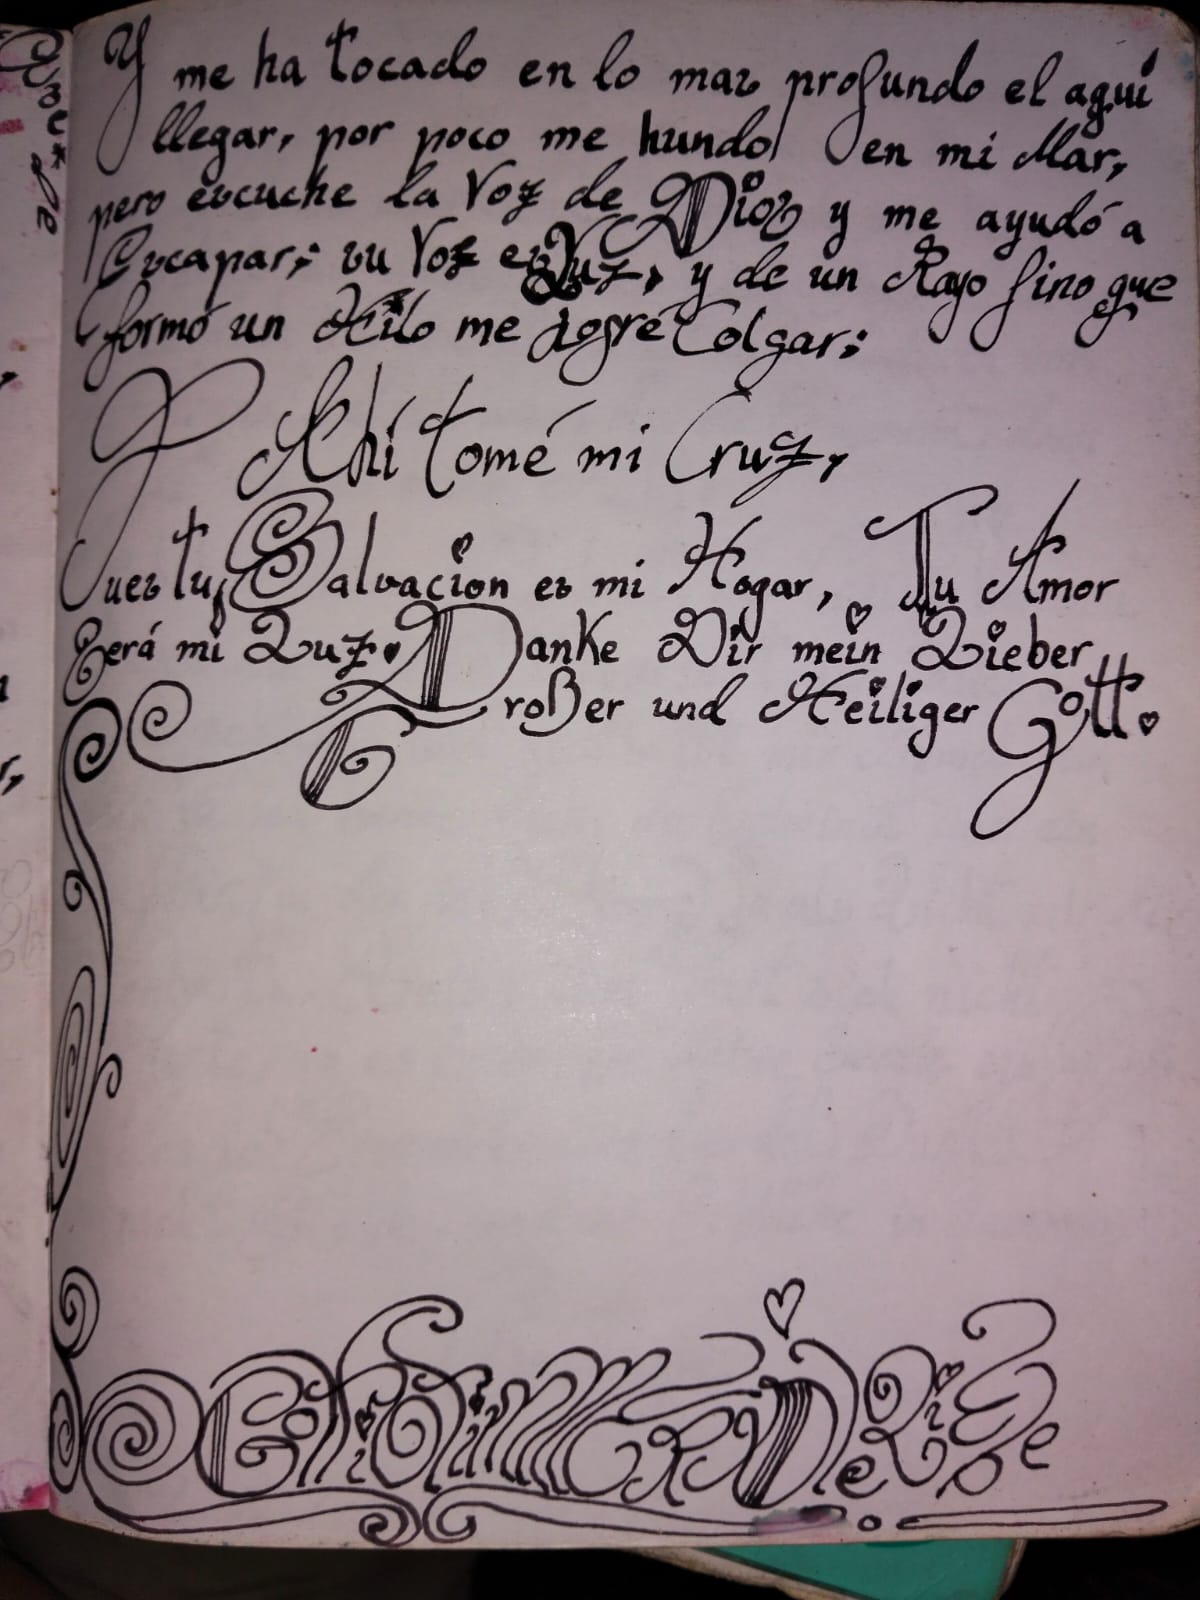 Y me ha tocado en lo mas profundo el aquí
llegar, por poco me hundo en mi Mar,
pero escuche la Voz de Dios y me ayudó a
Escapar; su Voz es Luz, y de un Rayo fino que
formó un Hilo me logré Colgar;
Ahí tomé mi Cruz,
Pues tu Salvacion es mi Hogar, Tu Amor
Será mi Luz. Danke Dir mein Lieber
Großer und Heiliger Gott.